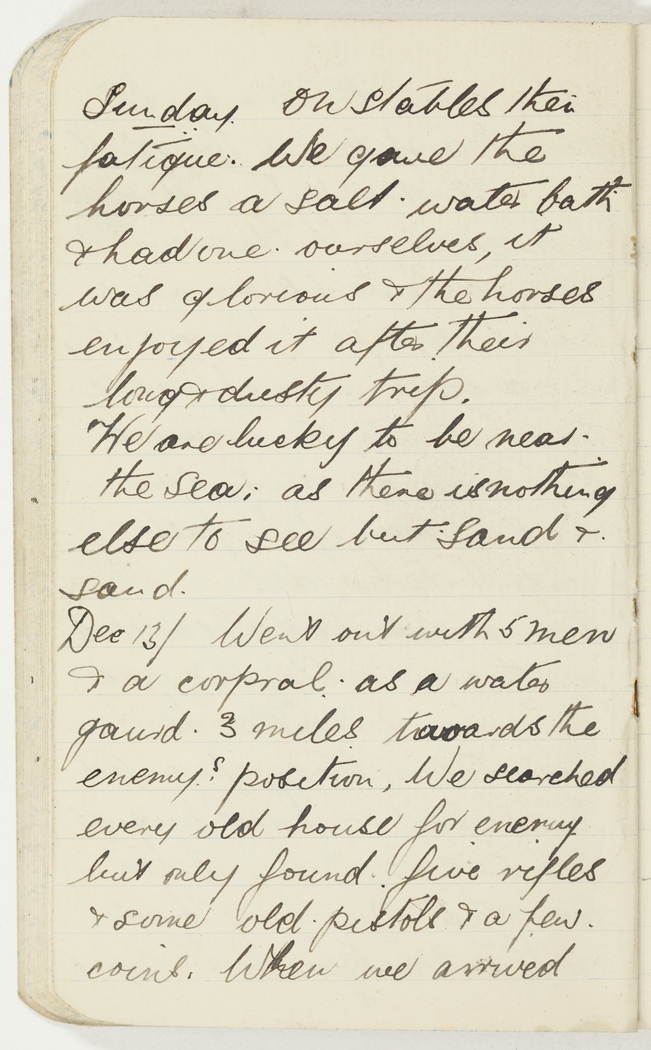 Sunday. On stables then
fatigue. We gave the
horses a salt. water bath
& had one. ourselves, it
was glorious & the horses
enjoyed it after their
long & dusty trip.
We are lucky to be near.
the sea; as there is nothing
else to see but sand &.
sand.
Dec 13/ Went out with 5 men
& a corpral. as a water
gaurd. 3 miles towards the
enemy's position, We searched
every old house for enemy
but only found. five rifles
& some old. pistols & a few.
coins. When we arrived